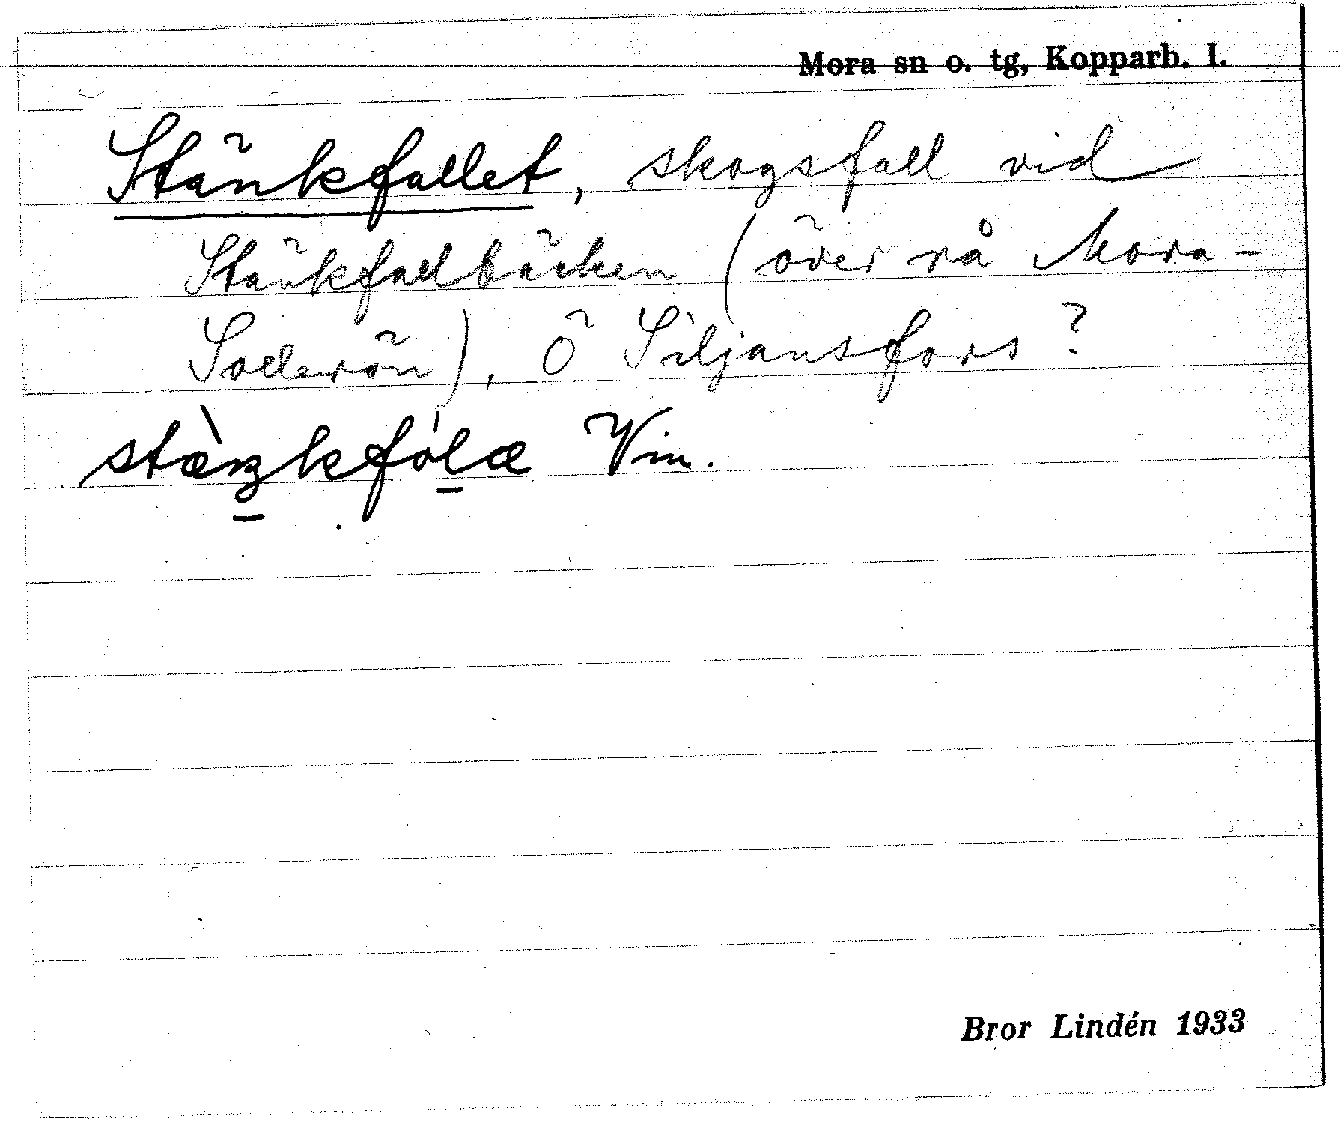 Mora sn o. tg, Kopparb. l.
Stänkfallet, skogsfall vid
Stänkfallbäcken (över rå Mora-
Sollerön), Ö Siljansfors?
stæ̀ŋkfòlæ Vin.
Bror Lindén 1933